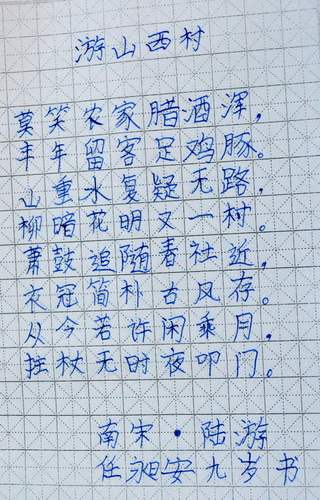 游山西村
莫笑农家腊酒浑，
丰年留客足鸡豚。
山重水复疑无路，
柳暗花明又一村。
萧鼓追随春社近，
衣冠简朴古风存。
从今若许闲乘月，
拄杖无时夜叩门。
南宋·陆游
任昶安九岁书